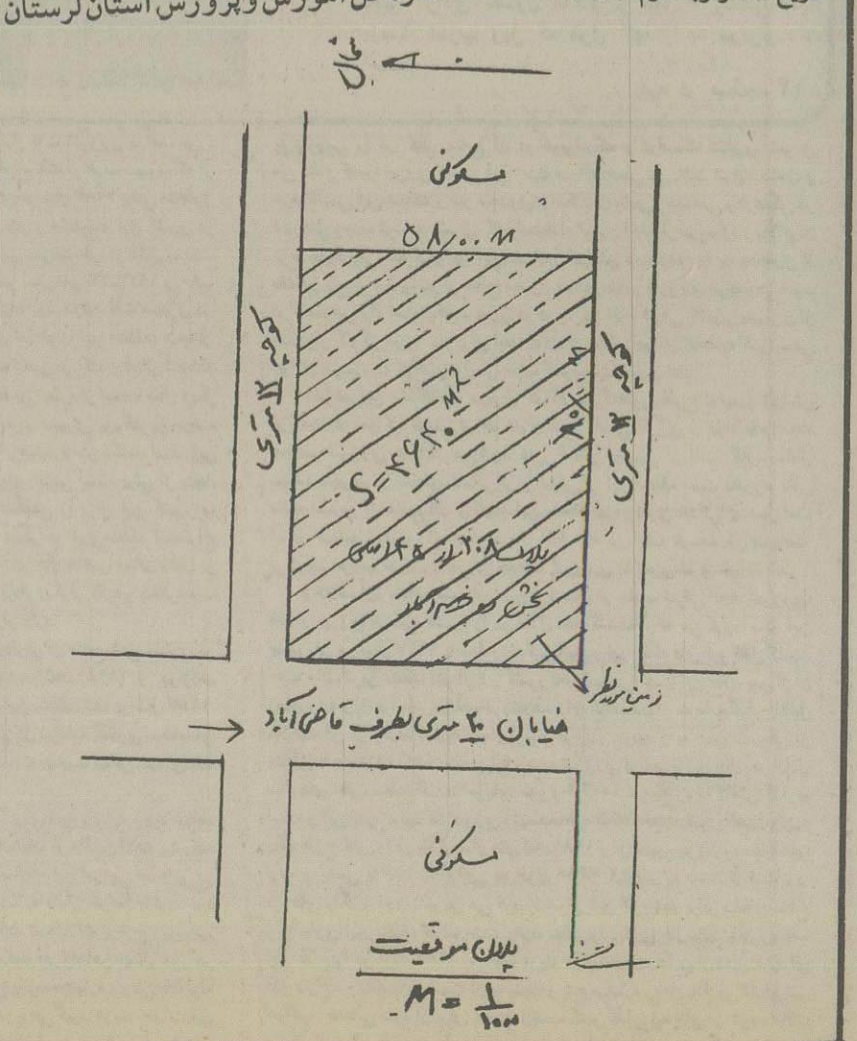 آموزش و پرورش استان لرستان
شمال
مسکونی
۵۸/۰۰ M
کوچه ۱۲ متری
کوچه ۱۲ متری
۸۰/۰۰ M
S = ۴۶۴۰ M²
پلاک ۲۰۸ از
بخش دو خرم آباد
زمین مورد نظر
خیابان ۲۰ متری بطرف قاضی آباد
مسکونی
پلان موقعیت
M = ۱/۱۰۰۰